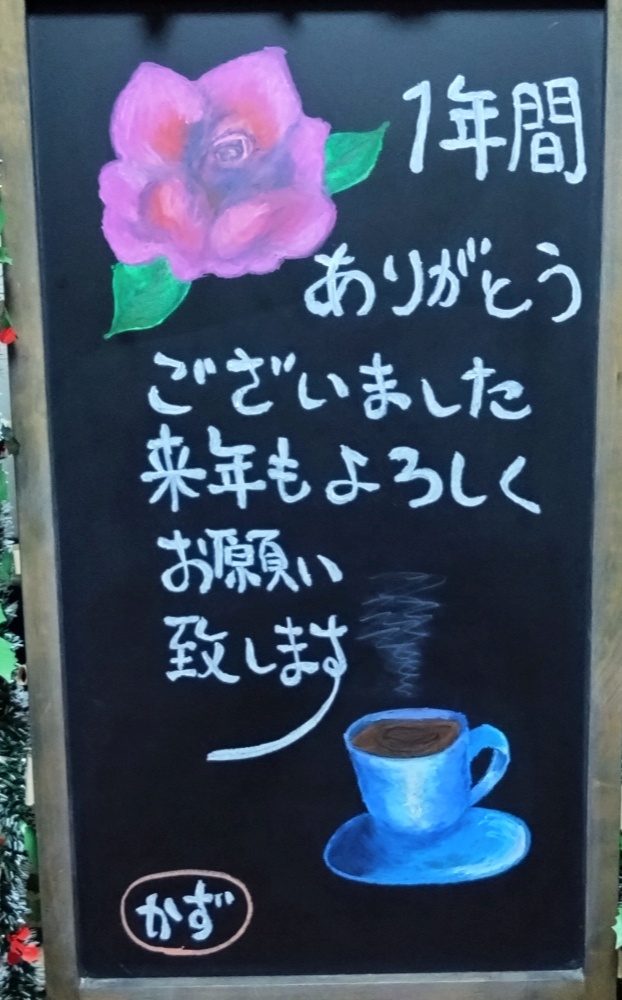 1年間
ありがとう
ございました
来年もよろしく
お願い
致します
かず